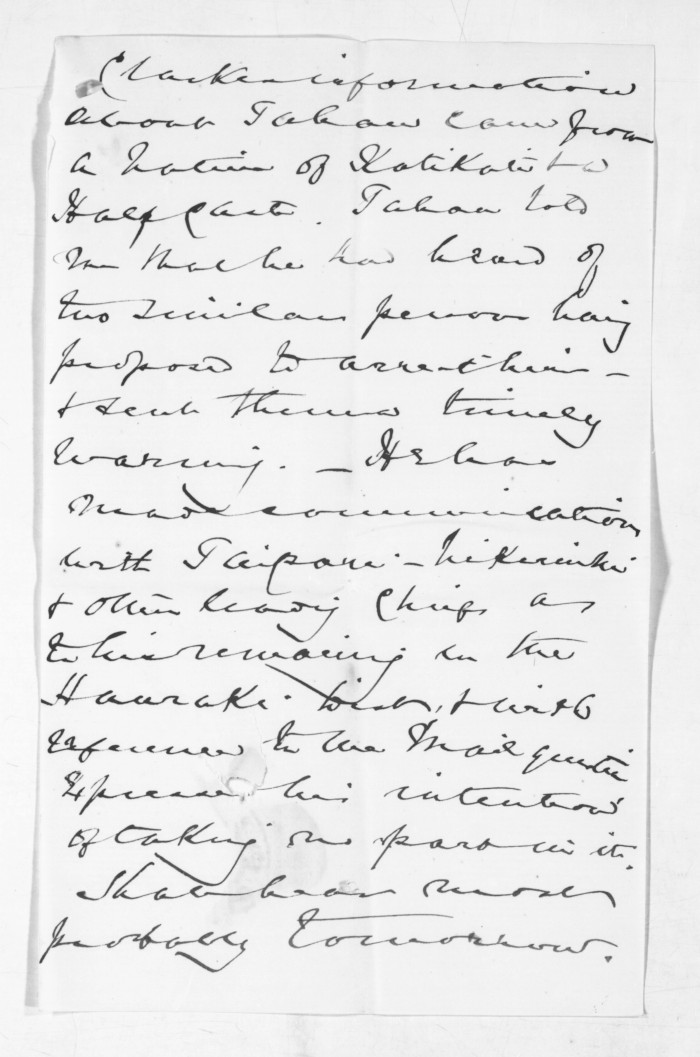 Clarkes information
about Tahaw came from
a native of Katikati & a
Half Caste. Tahaw told
me that he had heard of
two similar persons having
proposed to arrest him -
& sent them a timely
warning. - He has
made communication
with Taipari -
& other leading Chiefs as
to his remaining in the
Hauraki Dist, & with
reference to the Road question
Express his intention
of taking no part in it.
Shall hear most
probably tomorrow.